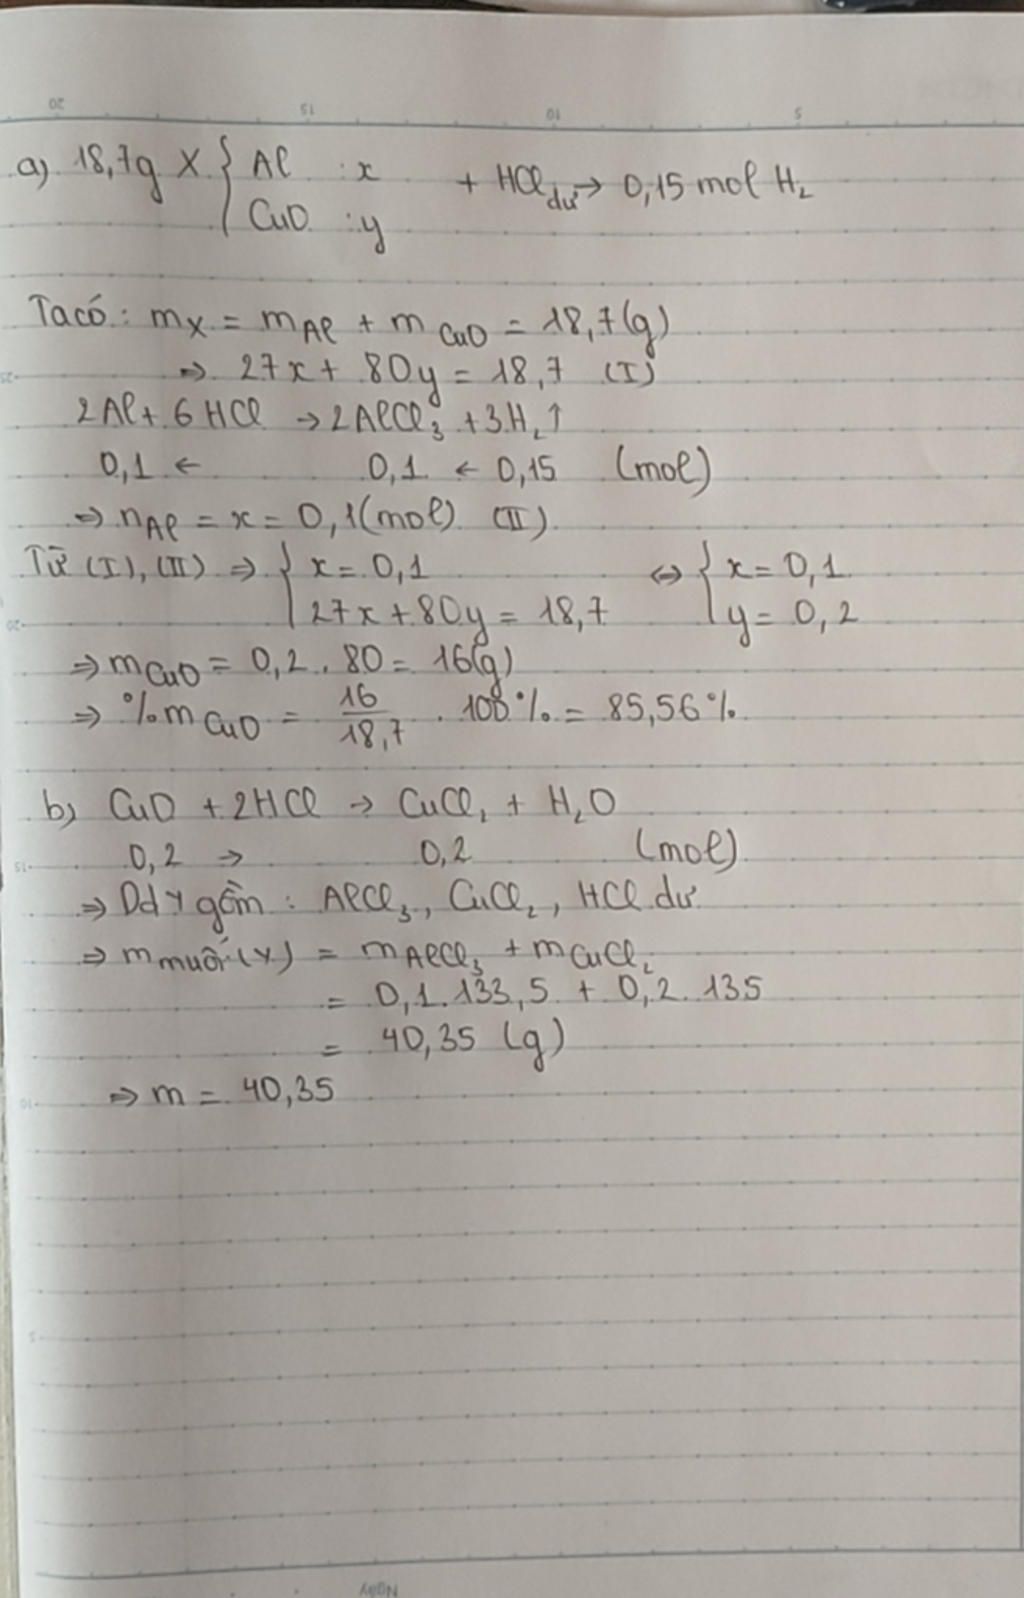 20 15 10 5
a) 18,7g X { Al : x + HCl dư → 0,15 mol H₂
CuO : y
Ta có : mX = mAl + mCuO = 18,7 (g)
⇒ 27x + 80y = 18,7 (I)
2Al + 6HCl → 2AlCl₃ + 3H₂↑
0,1 ← 0,1 ← 0,15 (mol)
⇒ nAl = x = 0,1 (mol) (II)
Từ (I), (II) ⇒ { x = 0,1 ⇔ { x = 0,1
27x + 80y = 18,7 y = 0,2
⇒ mCuO = 0,2 . 80 = 16 (g)
⇒ %mCuO = 16/18,7 . 100% = 85,56%
b) CuO + 2HCl → CuCl₂ + H₂O
0,2 → 0,2 (mol)
⇒ Dd Y gồm : AlCl₃, CuCl₂, HCl dư
⇒ m muối (Y) = mAlCl₃ + mCuCl₂
= 0,1.133,5 + 0,2.135
= 40,35 (g)
⇒ m = 40,35
Ngày